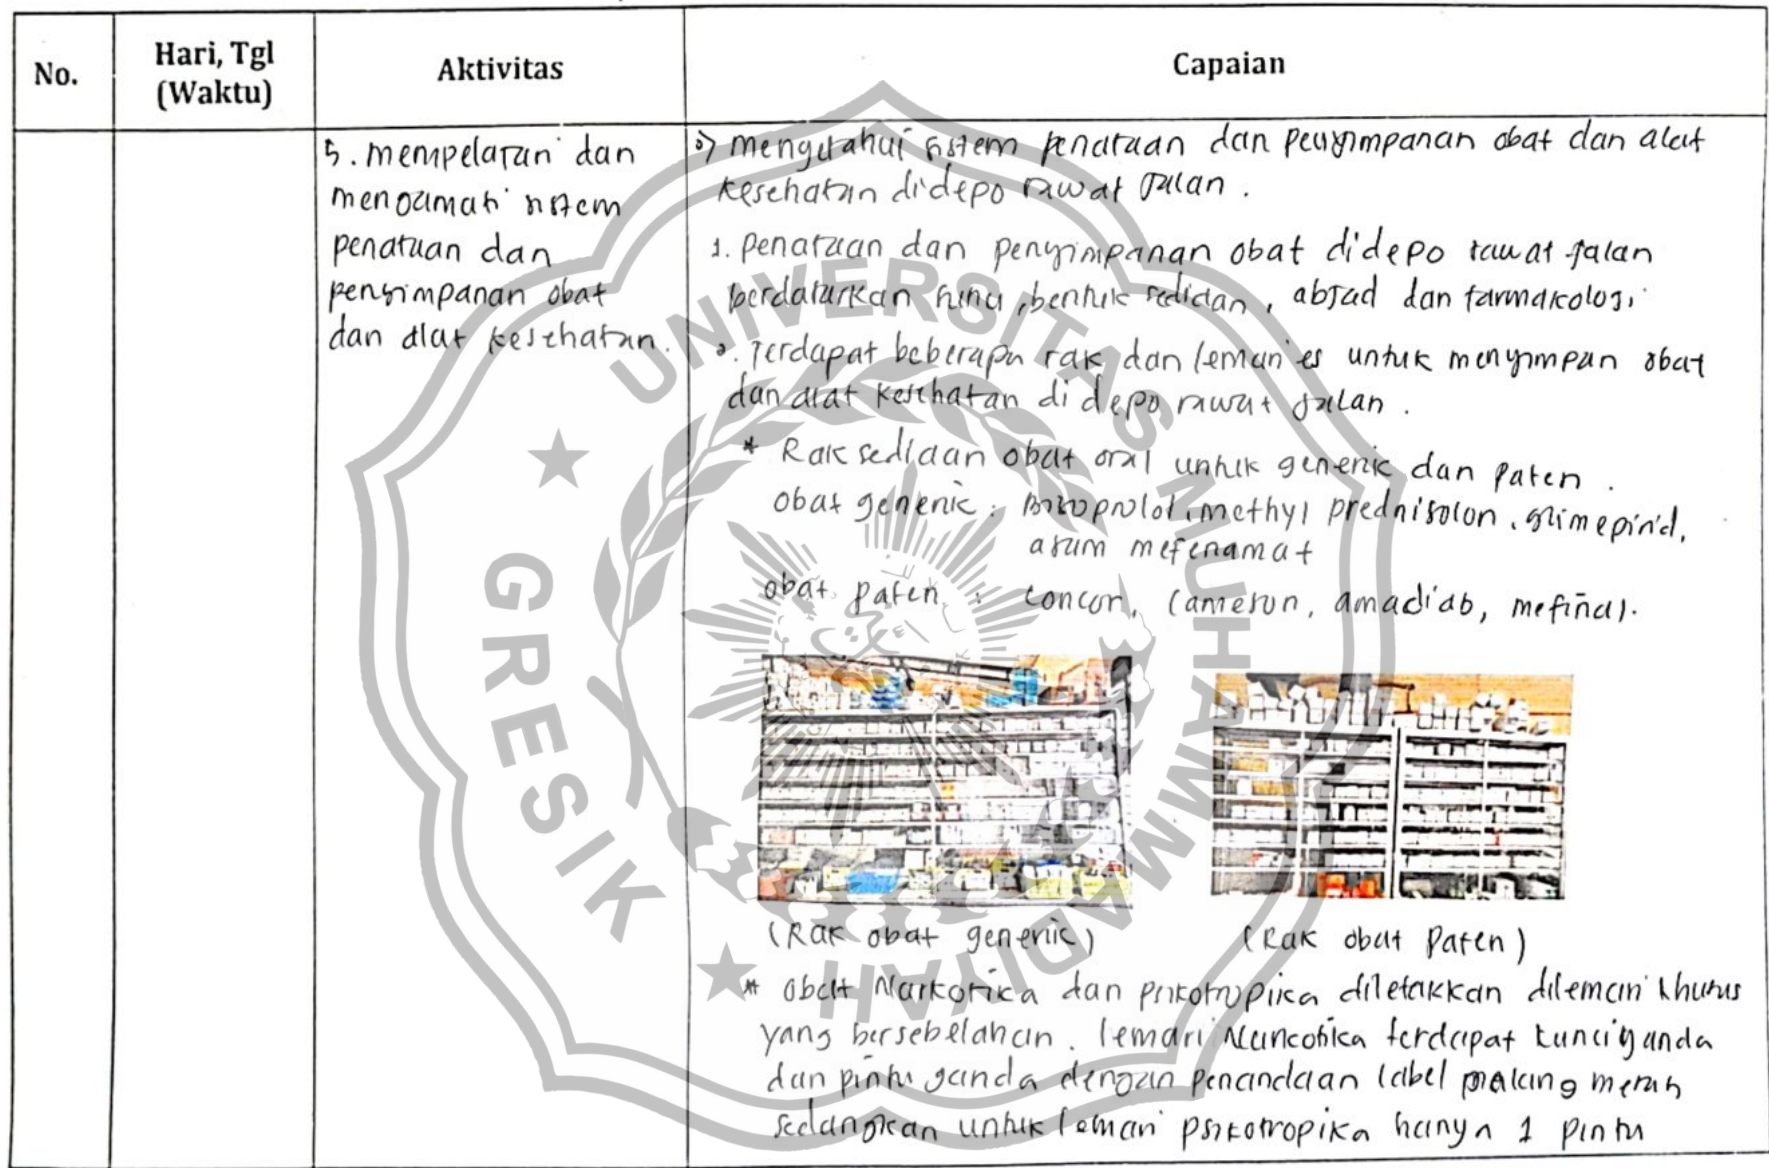 No.
Hari, Tgl
(Waktu)
Aktivitas
Capaian
5. mempelajari dan
mengamati sistem
penataan dan
penyimpanan obat
dan alat kesehatan.
mengetahui sistem penataan dan penyimpanan obat dan alat
kesehatan didepo rawat jalan.
1. penataan dan penyimpanan obat didepo rawat jalan
berdasarkan suhu, bentuk sediaan, abjad dan farmakologi
2. Terdapat beberapa rak dan lemari es untuk menyimpan obat
dan alat kesehatan di depo rawat jalan.
* Rak sediaan obat oral untuk generik dan paten.
obat generik : Bisoprolol, methyl prednisolon, glimepirid,
asam mefenamat
obat paten : concor, cameson, amadiab, mefinal.
(Rak obat generik)
(Rak obat Paten)
* obat Narkotika dan psikotropika diletakkan dilemari khusus
yang bersebelahan. lemari Narcotika terdapat kunci ganda
dan pintu ganda dengan penandaan label palang merah
sedangkan untuk lemari psikotropika hanya 1 pintu
UNIVERSITAS MUHAMMADIYAH
GRESIK